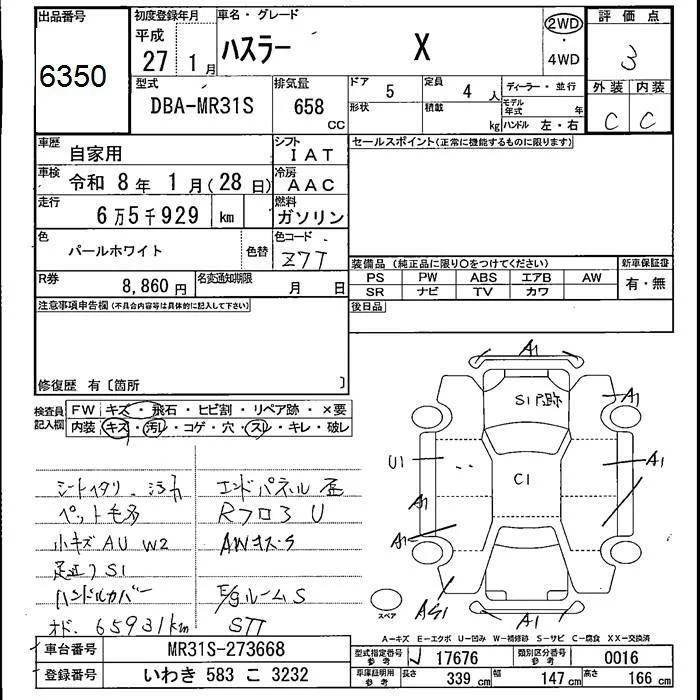 出品番号
6350
初度登録年月
平成
27 1月
車名・グレード
ハスラー X
2WD
・
4WD
評価点
3
外装 内装
C C
型式
DBA-MR31S
排気量
658
CC
ドア 5
定員 4人
ディーラー・並行
形状
積載 kg
モデル年式 年
ハンドル 左・右
車歴
自家用
シフト
IAT
セールスポイント(正常に機能するものに限ります)
車検 令和 8年 1月(28日)
冷房
AAC
走行
6万5千929 km
燃料
ガソリン
色
パールホワイト
色替
色コード
Z7T
装備品(純正品に限り○をつけてください)
新車保証書
PS PW ABS エアB AW
有・無
SR ナビ TV カワ
R券
8,860円
名変通知期限
月 日
後日品
注意事項申告欄(不具合内容等は具体的に記入して下さい)
修復歴 有〔箇所 〕
検査員記入欄
FW キズ・飛石・ヒビ割・リペア跡・×要
内装 キズ・汚レ・コゲ・穴・スレ・キレ・破レ
シートイタミ・汚れ
ペット毛多
小キズ AU W2
足立フS1
ハンドルカバー
オド、65931km
エンドパネル 歪
Rフロア U
AWキズS
E/gルームS
STT
A1
S1 P跡
A1
U1
C1
A1
A1
A1
AS1
A1
スペア
A-キズ E-エクボ U-凹み W-補修跡 S-サビ C-腐食 XX-交換済
車台番号 MR31S-273668
型式指定番号 参考 17676
類別区分番号 参考 0016
登録番号 いわき 583 こ 3232
車庫証明用 参考
長さ 339 cm
幅 147 cm
高さ 166 cm